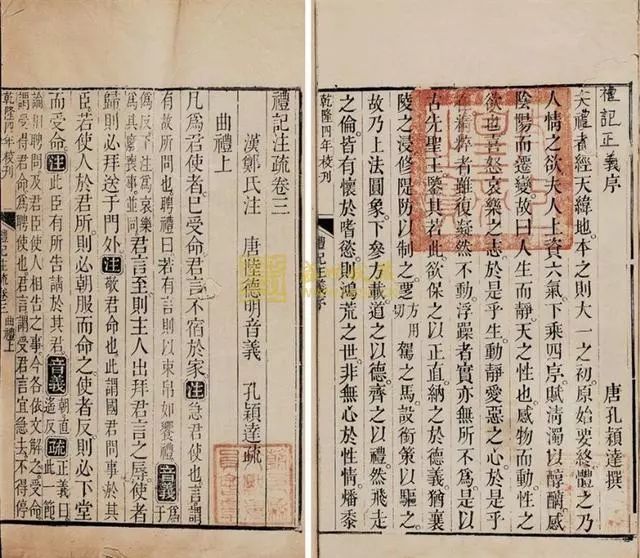 禮記正義序
唐孔穎達撰
夫禮者經天緯地本之則大一之初原始要終體之乃
人情之欲夫人上資六氣下乘四序賦清濁以醇醨感
陰陽而遷變故曰人生而靜天之性也感物而動性之
欲也喜怒哀樂之志於是乎生動靜愛惡之心於是乎
在精粹者雖復凝然不動浮躁者實亦無所不為是以
古先聖王鑒其若此欲保之以正直納之於德義猶襄
陵之浸修隄防以制之覂方用切駕之馬設銜策以驅之
故乃上法圓象下參方載道之以德齊之以禮然飛走
之倫皆有懷於嗜慾則鴻荒之世非無心於性情燔黍
乾隆四年校刊 禮記正義序
禮記注疏卷三
漢鄭氏注 唐陸德明音義 孔穎達疏
曲禮上
凡為君使者已受命君言不宿於家注急君使也言謂
有故所問也聘禮曰若有言則以束帛如饗禮音義為于
偽反下注為哀樂為其喪事並同君言至則主人出拜君言之辱使者
歸則必拜送于門外注敬君命也此謂國君問事於其
臣若使人於君所則必朝服而命之使者反則必下堂
而受命注此臣有所告請於其君音義朝直遙反疏正義曰此一節
論出聘問及君臣相告之事今各依文解之受命
謂受得君命為聘使也君言謂受君言宜急去不得停
乾隆四年校刊 禮記注疏卷三 曲禮上